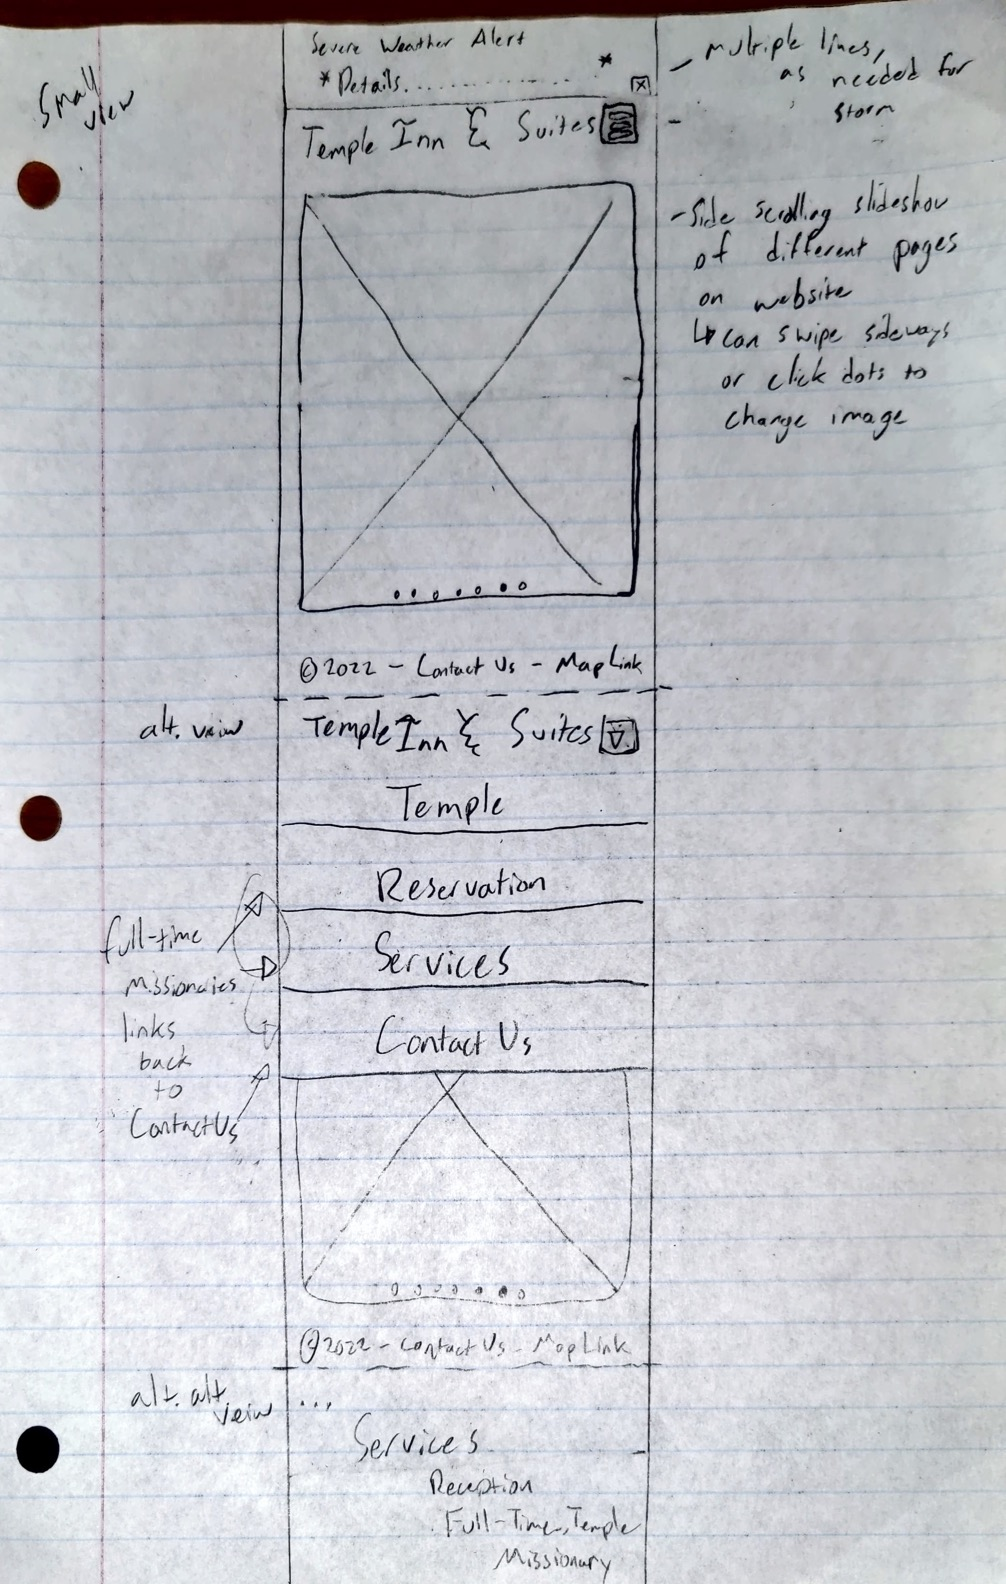 Small
view
Severe Weather Alert
* Details..................... *
x
- multiple lines,
as needed for
storm
Temple Inn & Suites
- Side scrolling slideshow
of different pages
on website
↳ can swipe sideways
or click dots to
change image
© 2022 - Contact Us - Map Link
alt. view
Temple Inn & Suites
Temple
Reservation
Services
Contact Us
full-time
missionaries
links
back
to
Contact Us
© 2022 - Contact Us - Map Link
alt. alt.
veiw
...
Services
Reception
Full-Time, Temple
Missionary